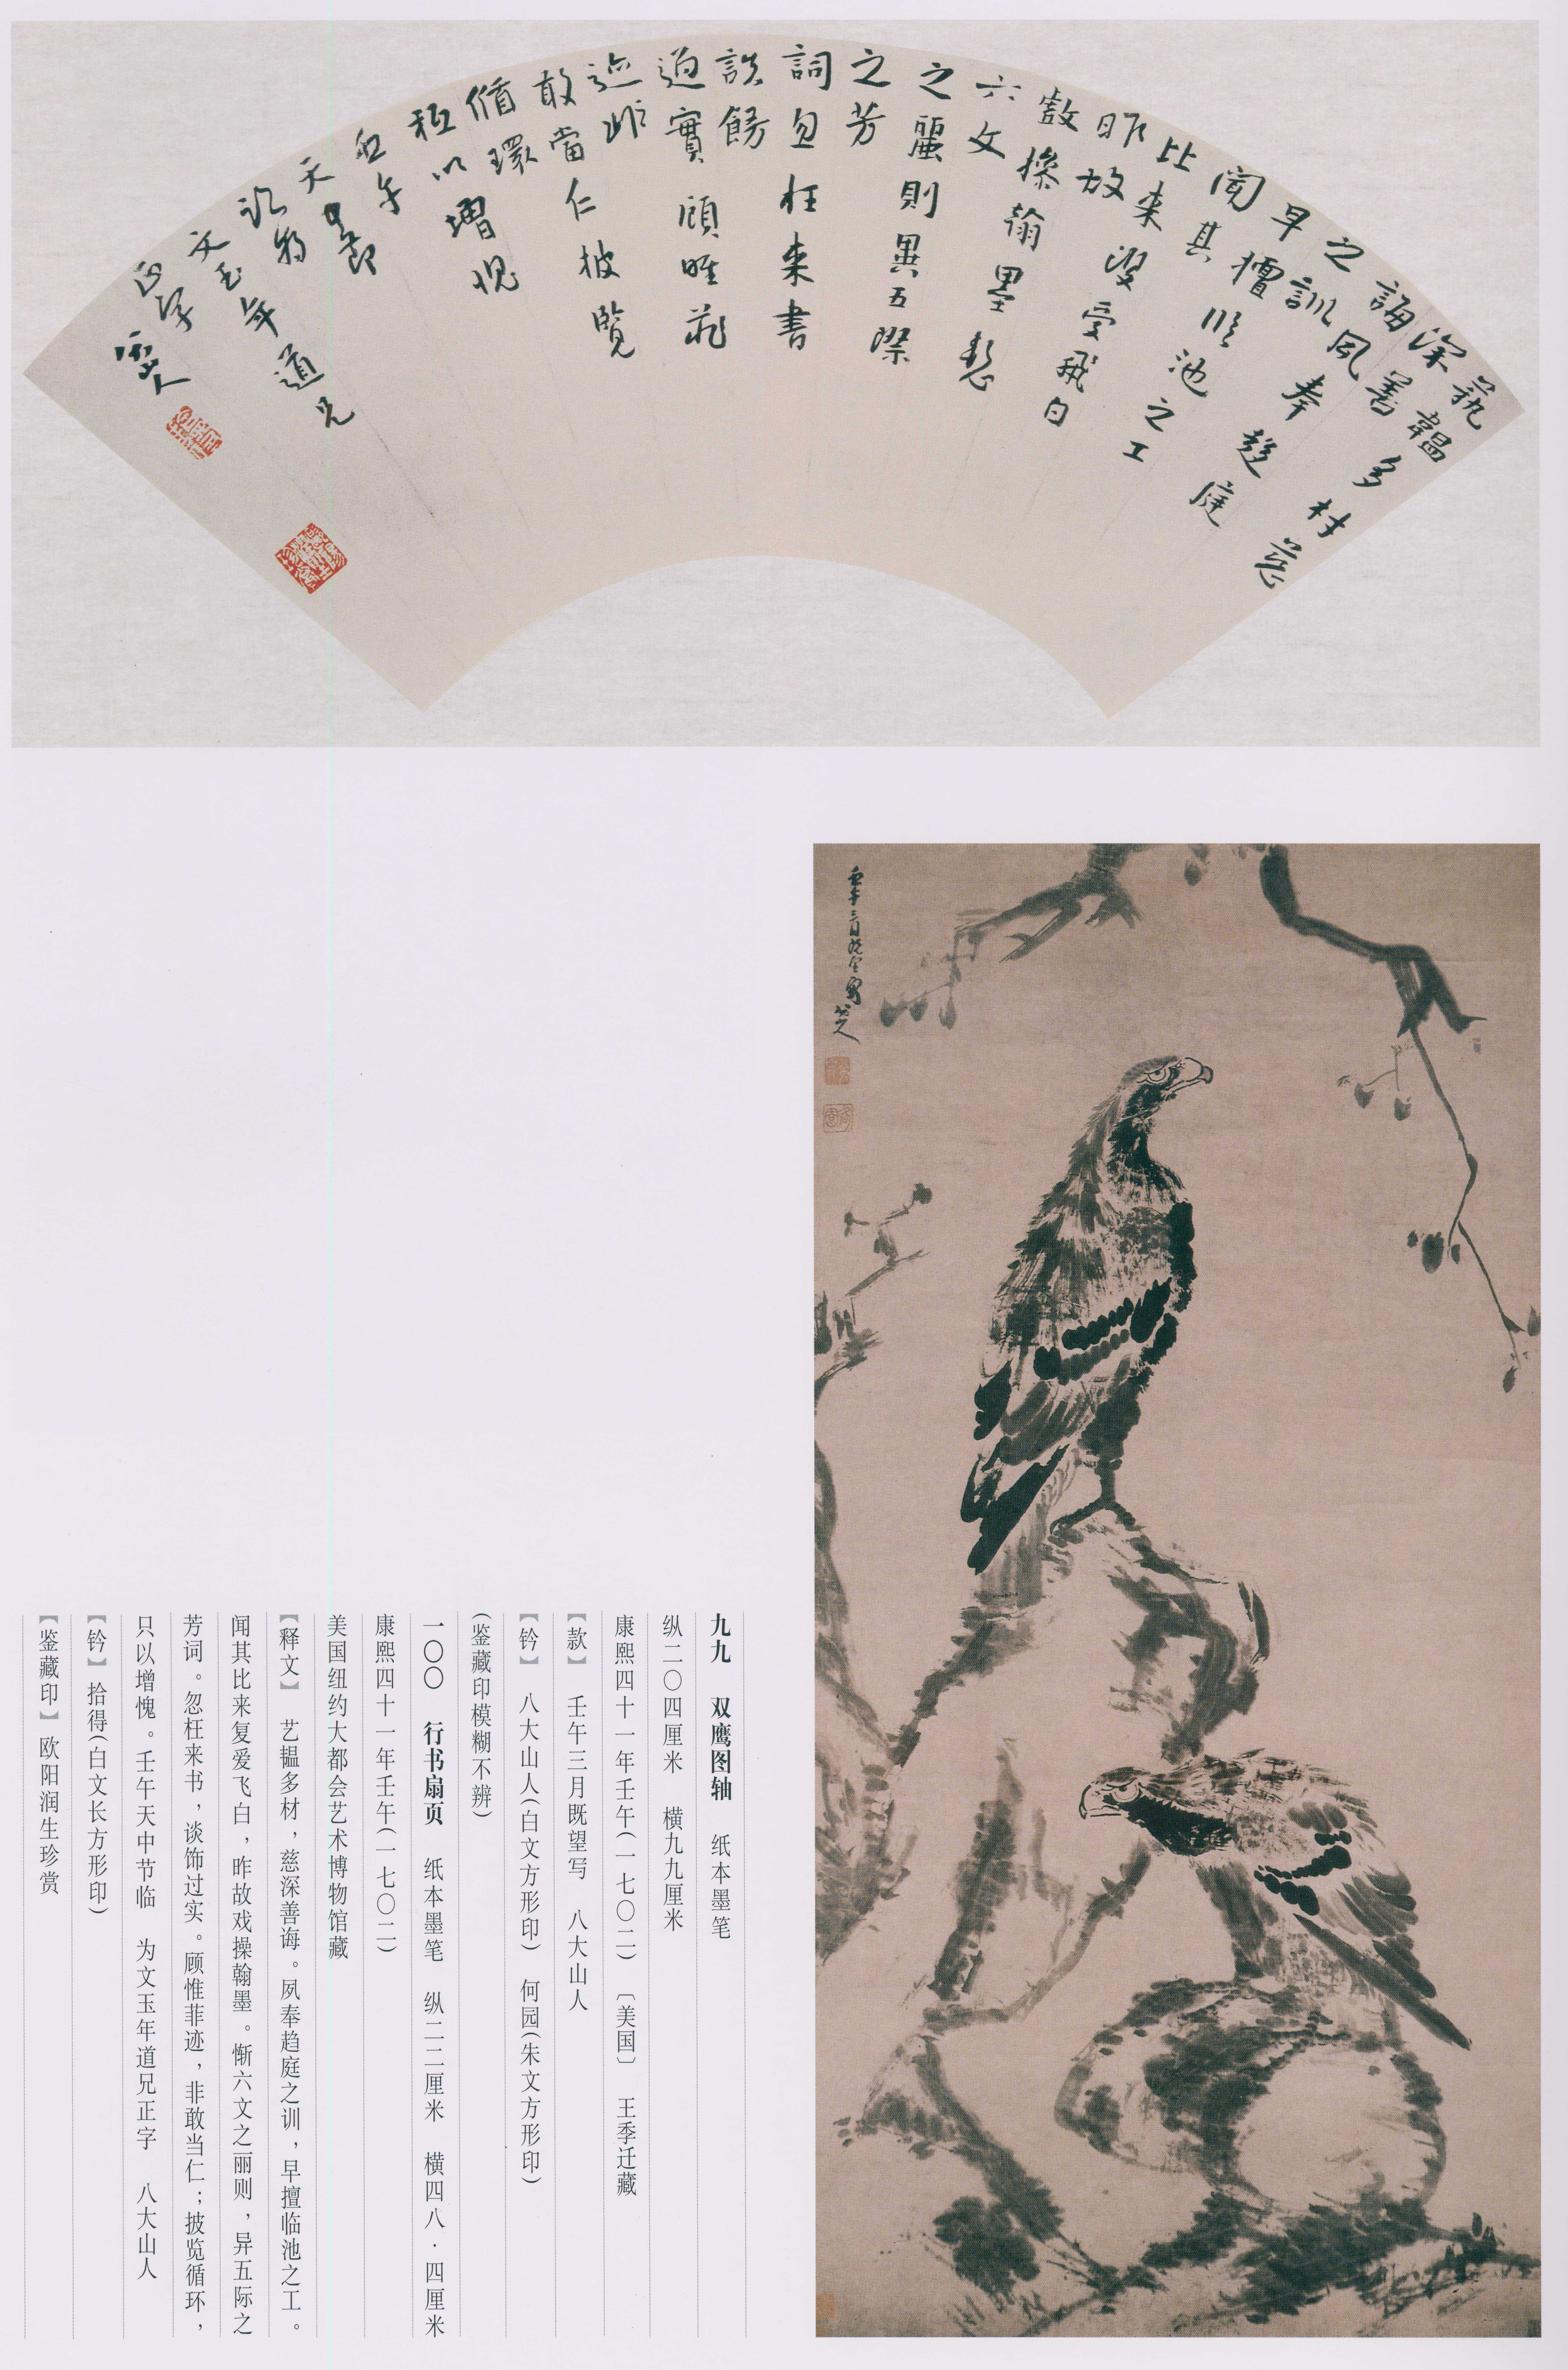 藝韞多材慈
深善
誨夙奉趍庭
之訓
早擅臨池之工
聞其
比来復爱飛白
昨故
戲操翰墨慙
六文
之麗則異五際
之芳
詞忽枉来書
談餙
過實顧唯菲
迹非
敢當仁披覧
循環
秖以增愧
壬午
天中節
臨為
文玉年道兄
正字
八大山人
壬午三月既望写 八大山人
九九 双鹰图轴 纸本墨笔
纵二〇四厘米 横九九厘米
康熙四十一年壬午(一七〇二)〔美国〕 王季迁藏
【款】 壬午三月既望写 八大山人
【钤】 八大山人(白文方形印) 何园(朱文方形印)
(鉴藏印模糊不辨)
一〇〇 行书扇页 纸本墨笔 纵二二厘米 横四八·四厘米
康熙四十一年壬午(一七〇二)
美国纽约大都会艺术博物馆藏
【释文】 艺韫多材，慈深善诲。夙奉趋庭之训，早擅临池之工。
闻其比来复爱飞白，昨故戏操翰墨。惭六文之丽则，异五际之
芳词。忽枉来书，谈饰过实。顾惟菲迹，非敢当仁；披览循环，
只以增愧。壬午天中节临 为文玉年道兄正字 八大山人
【钤】拾得(白文长方形印)
【鉴藏印】欧阳润生珍赏